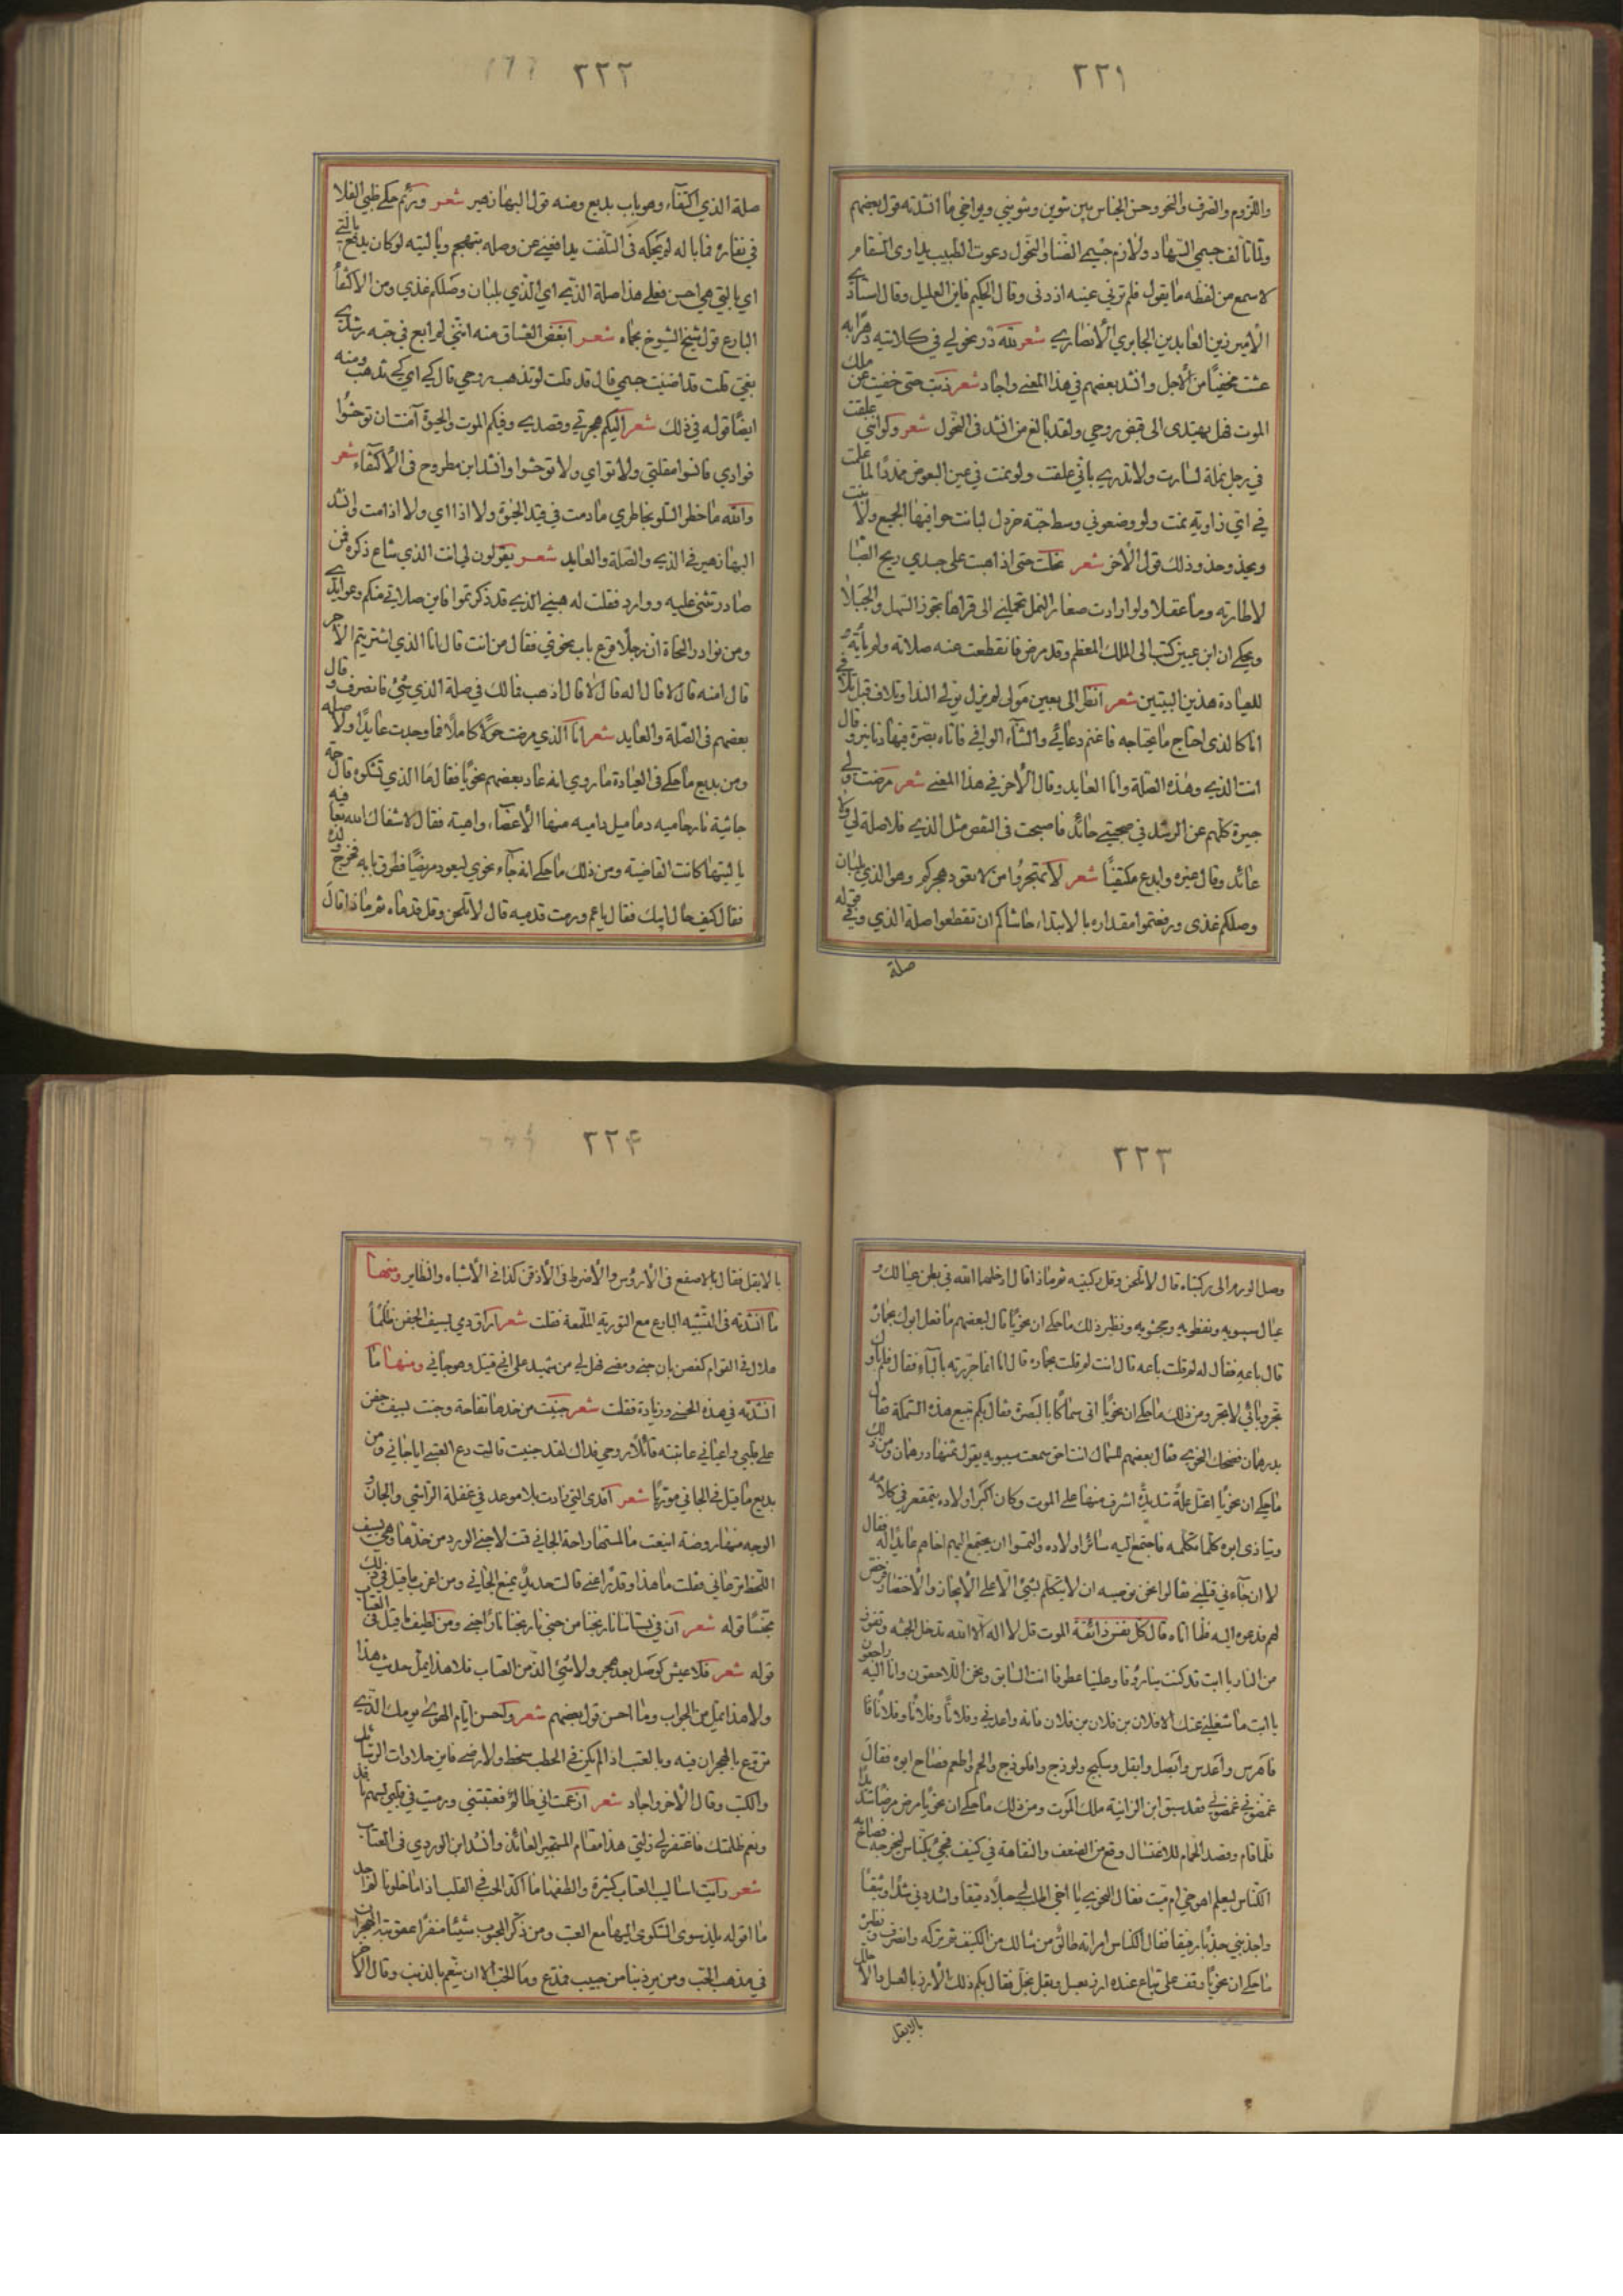 ٢٢١
واللزوم والصرف والنحو وحسن الجناس بين شوين وشويني ويواخي ما انشدته قول بعضهم
ولما تالف جسمي السهاد ولازم جسمي الضنا والنحول دعوت الطبيب يداوى السقام
لاسمع من لفظه ما يقول فلم ترني عينه اذ دنى وقال الحكيم فاين العليل وقال استاذي
الامير زين العابدين الجابري الانصاري شعر لله در نحولي في كلائيته دهرا به
عشت مخفيا من الاجل وانشد بعضهم في هذا المعنى واجاد شعر ذبت حتى خفيت عن ملك
الموت فهل يهتدى الى قبض روحي ولقد بالغ من انشد فى النحول شعر ولو انني علقت
في رجل نملة لسارت ولا تدري باني علقت ولو نمت في عين البعوض ممددا لما علمت
في اي زاوية نمت ولو وضعوني وسط حبة خردل لبانت حوافيها الجميع ولا بنت
ويحذو حذو ذلك قول الاخر شعر نحلت حتى اذا هبت على جسدي ريح الصبا
لا طارته وما عقلا ولو ارادت صغار النمل تحملني الى قراها تجوز السهل والجبلا
ويحكى ان ابن عنين كتب الى الملك المعظم وقد مرض فانقطعت عنه صلاته ولم يأته
للعيادة هذين البيتين شعر انظر الى بعين مولى لم يزل يولي الندا وتلاف قبل تلافي
انا كالذى احتاج ما يحتاجه فاغنم دعائي والثناء الوافي فاتاه بصرة فيها دنانير وقال
انت الذي وهذه الصلة وانا العايد وقال الاخر في هذا المعنى شعر مرضت ولي
جيرة كلهم عن الرشد في صحبتي حائد فاصبحت فى النقص مثل الذي فلا صلة لي ولا
عائد وقال غيره وابدع مكتفيا شعر لا تهجروا من لا تعود هجركم وهو الذي بلبان
وصلكم غذى ورفعتموا مقداره بالابتداء حاشاكم ان تقطعوا صلة الذي وفي قوله
صلة
٢٢٢
صلة الذي اكتفاء وهو باب بديع ومنه قول البها زهير شعر ورئم حكى ظبي الفلا
في نفاره فما باله لم يحكه فى التلفت يدافعني عن وصله بتهجم ويا ليته لو كان يدفع بالتي
اي بالتي هي احسن فعلى هذا صلة الذي اي الذي بلبان وصلكم غذي ومن الاكتفاء
البارع قول شيخ الشيوخ بحماه شعر ابغض العشاق منه انني لم ابع في حبه رشدي
بغي قلت قد اضنيت جسمي قال قد قلت لو تذهب روحي قال كي اي كي تذهب ومنه
ايضا قوله في ذلك شعر اليكم هجرتي وقصدي وفيكم الموت والحيوة آمنت ان توحشوا
فوادي فانسوا مقلتي ولا تواي ولا توحشوا وانشد ابن مطروح فى الاكتفاء شعر
والله ما خطر السلو بخاطري ما دمت في قيد الحيوة ولا اذا اي ولا اذا مت وانشد
البها زهير في الذي والصلة والعايد شعر يقولون لي انت الذي شاع ذكره فمن
صادر تثنى عليه ووارد فقلت له هبني الذي قد ذكرتموا فاين صلاتي منكم وعوايدي
ومن نوادر النحاة ان رجلا قرع باب نحوي فقال من انت قال انا الذي اشتريتم الاجر
قال امنه قال لا قال اله قال لا قال اذهب فما لك في صلة الذي شيء فانصرف وقال
بعضهم فى الصلة والعايد شعر انا الذي مرضت حولا كاملا فما وجدت عايدا ولا صله
ومن بديع ما حكى فى العيادة ما روي انه عاد بعضهم نحويا فقال ما الذي تشكوه قال حمة
جاثية نارها حاميه دماميل داميه منها الاعضاء واهية فقال لا شفاك الله بعافيه
يا ليتها كانت القاضية ومن ذلك ما حكى انه جاء نحوي ليعود مريضا فطرق بابه فخرج ولده
فقال كيف حال ابيك فقال يا عم ورمت قدميه قال لا تلحن وقل قدماه ثم ماذا قال
٢٢٣
وصل الورم الى ركبتاه قال لا تلحن وقل ركبتيه ثم ماذا قال ادخلها الله في بطن عيالك و
عيال سيبويه ونفطويه وجحشويه ونظير ذلك ما حكى ان نحويا قال لبعضهم ما فعل ابوك بحماره
قال باعه فقال له لم قلت باعه قال انت لم قلت بحماره قال انا انما جررته بالباء فقال فلم باؤك
تجر وبائي لا تجر ومن ذلك ما حكى ان نحويا اتى سماكا بالبصرة فقال بكم تبيع هذه السمكة فقال
بدرهمان فضحك النحوي فقال بعضهم للسماك انت احمق سمعت سيبويه يقول ثمنها درهمان ومن ذلك
ما حكى ان نحويا اعتل علة شديدة اشرف منها على الموت وكان اكبر اولاده يتمقعر في كلامه
ويتاذى ابوه كلما كلمه فاجتمع اليه سائر اولاده والتمسوا ان يجتمع اليهم اخاهم عايدا له فقال
لا ان جاءني قتلني فقالوا نحن نوصيه ان لا يتكلم بشيء الا على الايجاز والاختصار فرخص
لهم فدعوه اليه فلما اتاه قال كل نفس ذائقة الموت قل لا اله الا الله تدخل الجنه وتفوز
من النار يا ابت قد كنت بنا رؤفا وعلينا عطوفا انت السابق ونحن اللاحقون وانا اليه راجعون
يا ابت ما شغلني عنك الا فلان بن فلان من فلان فانه واعدني وفلانا وفلانا وفلانا فا
فاهرس واعدس وابصل وابقل وسكبج ولوذج وافلوذج والحم واطعم فصاح ابوه فقال
غمضوني غمضوني فقد سبق ابن الزانية ملك الموت ومن ذلك ما حكى ان نحويا مرض مرضا شديدا
فلما قام وقصد الحمام للاغتسال وقع من الضعف والنقاهة في كنيف فجيء بكناس ليخرجه فصاح
الكناس ليعلم اهو حي ام ميت فقال النحوي يا اخي اطلب لي حبلا دقيقا واشددني شدا وثيقا
واجذبني جذبا رفيقا فقال الكناس امراته طالق من شالك من الكنيف ثم تركه وانصرف ونظير
ما حكى ان نحويا وقف على بياع عنده ارز بعسل وبقل بخل فقال بكم ذلك الارز بالعسل والاخلل
بالابقل
٢٢٤
بالابقل فقال بالاصفع فى الارؤس والاضرط فى الاذقن كذا في الاشباه والنظاير ومنها
ما انشدته فى التشبيه البارع مع التورية الملمعة فقلت شعر اراق دمي بسيف الجفن ظلما
هلال فى القوام كغصن بان جنى ومضى فهل لي من شهيد على اني قتيل وهو جاني ومنها ما
انشدته في هذه الحسنى وزيادة فقلت شعر جنيت من خدها تفاحة وجنت بسيف جفن
على قلبي واعياني عاتبته قائلا روحي فداك لقد جنيت قالت دع العتبى اياجاني ومن
بديع ما قيل في الجاني موريا شعر افدى التي زادت بلا موعد في غفلة الراشي والجان و
الوجه منها روضة اينعت ما لمستها راحة الجاني قمت لاجني الورد من خدها وهي بسيف
اللحظ ترعاني فقلت ما هذا وقد راعني قالت حديد يمنع الجاني ومن اغرب ما قيل في ذلك
مجنسا قوله شعر ان في بستاننا نارنجنا من جنى نارنجنا نارا جنى ومن لطيف ما قيل فى العتاب
قوله شعر فلا عيش كوصل بعد هجر ولا شيء الذ من العتاب فلا هذا يمل حديث هذا
ولا هذا يمل من الجواب وما احسن قول بعضهم شعر واحسن ايام الهوى يومك الذي
تروع بالهجران فيه وبالعتب اذا لم يكن في الحب سخط ولا رضى فاين حلاوات الرسائل
والكتب وقال الاخر واجاد شعر ازعمت اني ظالم فعتبتني ورميت في قلبي بسهم نافذ
ونعم ظلمتك فاغتفر لي زلتي هذا مقام المستجير العائذ وانشد ابن الوردي فى العتاب
شعر رايت اساليب العتاب كثيرة والطفها ما اكد الحب فى القلب اذا ما خلونا لم اجد
ما اقوله يلذ سوى الشكوى اليها مع العتب ومن ذكر المحبوب شيئا منفرا عقوبته الهجران
في مذهب الحب ومن يرذينا من حبيب ممنع وما الحب الا ان ينعم بالذنب وقال الاخر